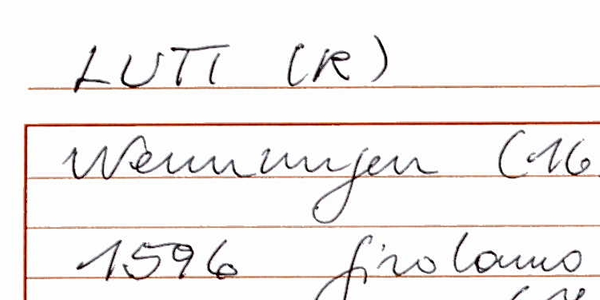 LUTI (R)
Wennungen (16
1596 Girolamo